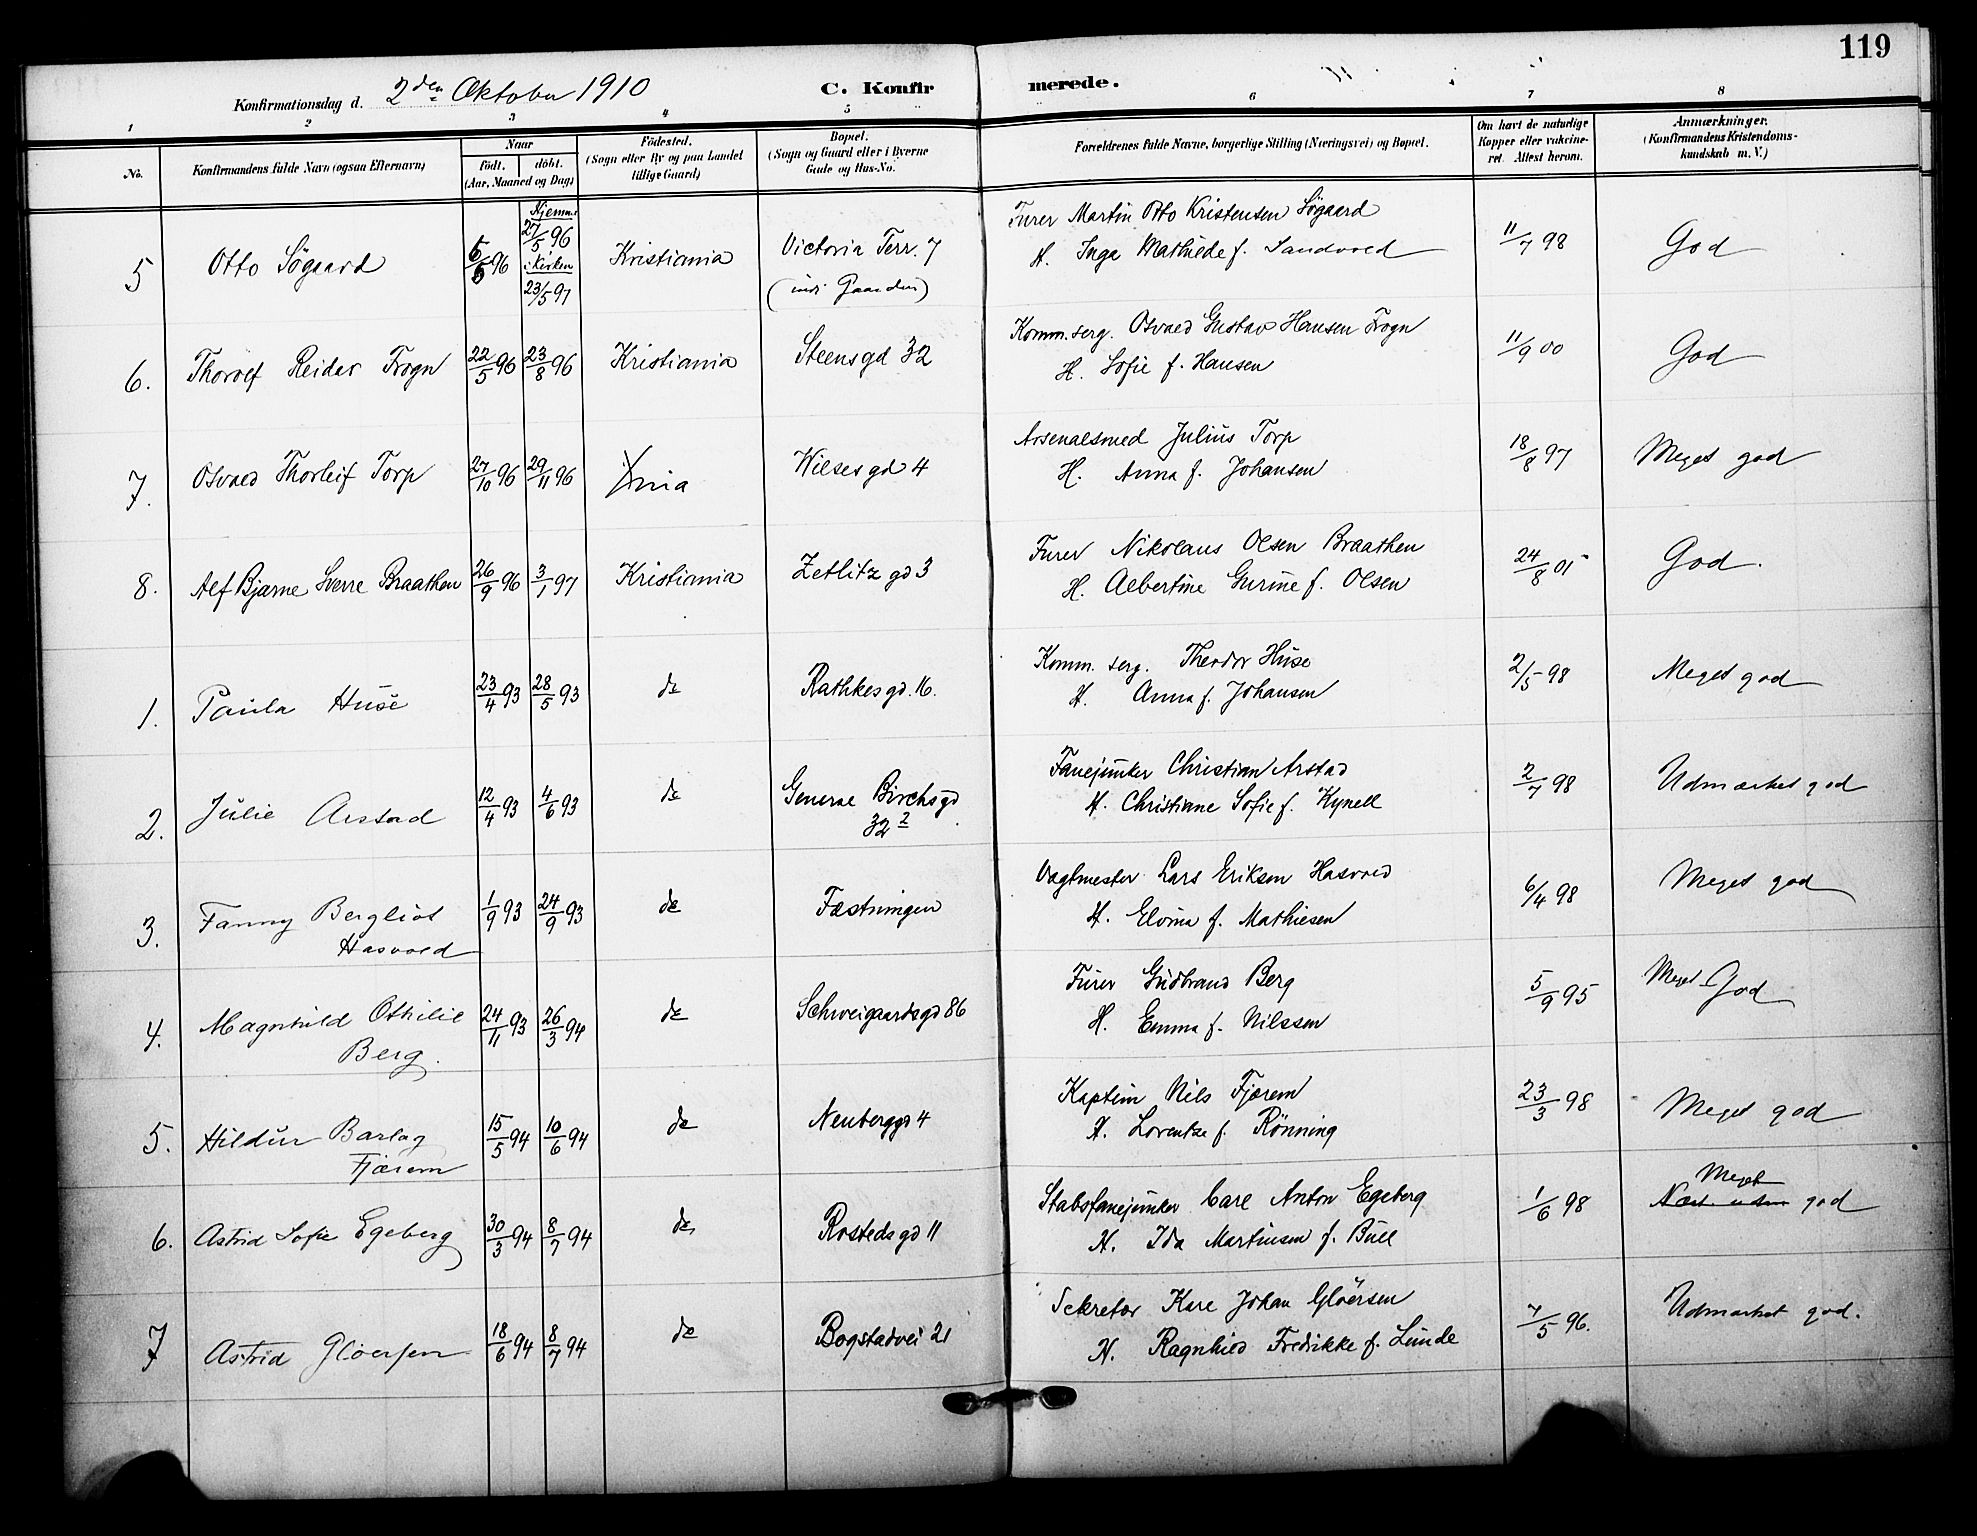 119
Konfirmationsdag d. 2den Oktober 1910
C. Konfirmerede.
1 2 3 4 5 6 7 8
No.
Konfirmandens fulde Navn (ogsaa Efternavn)
Naar
födt. döbt.
(Aar, Maaned og Dag)
Födested.
(Sogn eller By og paa Landet
tillige Gaard)
Bopæl.
(Sogn og Gaard eller i Byerne
Gade og Hus-No.
Forældrenes fulde Navne, borgerlige Stilling (Næringsvei) og Bopæl.
Om havt de naturlige
Kopper eller vakcine-
ret. Attest herom.
Anmærkninger.
(Konfirmandens Kristendoms-
kundskab m. V.)
5 Otto Sögaard 6/5 96 Hjemme 27/5 96 i Kirken 23/5 97 Kristiania Victoria Terr. 7 Furer Martin Otto Kristensen Sögaard 11/7 98 God
(indi Gaarden) H. Inga Mathilde f. Sandvold
6. Thorolf Reidar Frogn 22/5 96 23/8 96 Kristiania Steensgd 32 Komm. serg. Osvald Gustav Hansen Frogn 11/9 00 God
H. Sofie f. Hansen
7. Osvald Thorleif Torp 27/10 96 29/11 96 Xnia Wilsesgd 4 Arsenalsmed Julius Torp 18/8 97 Meget god
H. Anna f. Johansen
8. Alf Bjarne Sverre Braathen 26/9 96 3/1 97 Kristiania Zetlitz gd 3 Furer Nikolaus Olsen Braathen 24/8 01 God.
H. Albertine Gurine f. Olsen
1. Paula Huse 23/4 93 28/5 93 do Rathkesgd. 16. Komm. serg. Theodor Huse 2/5 98 Meget god
H. Anna f. Johansen
2. Julie Arstad 12/4 93 4/6 93 do General Birchsgd Fanejunker Christian Arstad 2/7 98 Udmærket god
32 2 H. Christiane Sofie f. Kynell
3. Fanny Bergliot 1/9 93 24/9 93 do Fæstningen Vagtmester Lars Eriksen Hasvold 6/4 98 Meget god
Hasvold H. Elvina f. Mathiesen
4. Magnhild Othilie 24/11 93 26/3 94 do Schweigaardsgd 86 Furer Gudbrand Berg 5/9 95 Meget God
Berg. H. Emma f. Nilssen
5. Hildur Barlag 15/5 94 10/6 94 do Neuberggd 4 Kaptein Nils Fjærem 23/3 98 Meget god
Fjærem H. Lorentze f. Rönning
6. Astrid Sofie Egeberg 30/3 94 8/7 94 do Rostedsgd 11 Stabsfanejunker Carl Anton Egeberg 1/6 98 Meget
Næst udm god
H. Ida Martinsen f. Bull
7 Astrid Gløersen 18/6 94 8/7 94 do Bogstadvei 21 Sekretær Karl Johan Glöersen 7/5 96. Udmærket god.
H. Ragnhild Fredrikke f. Lunde